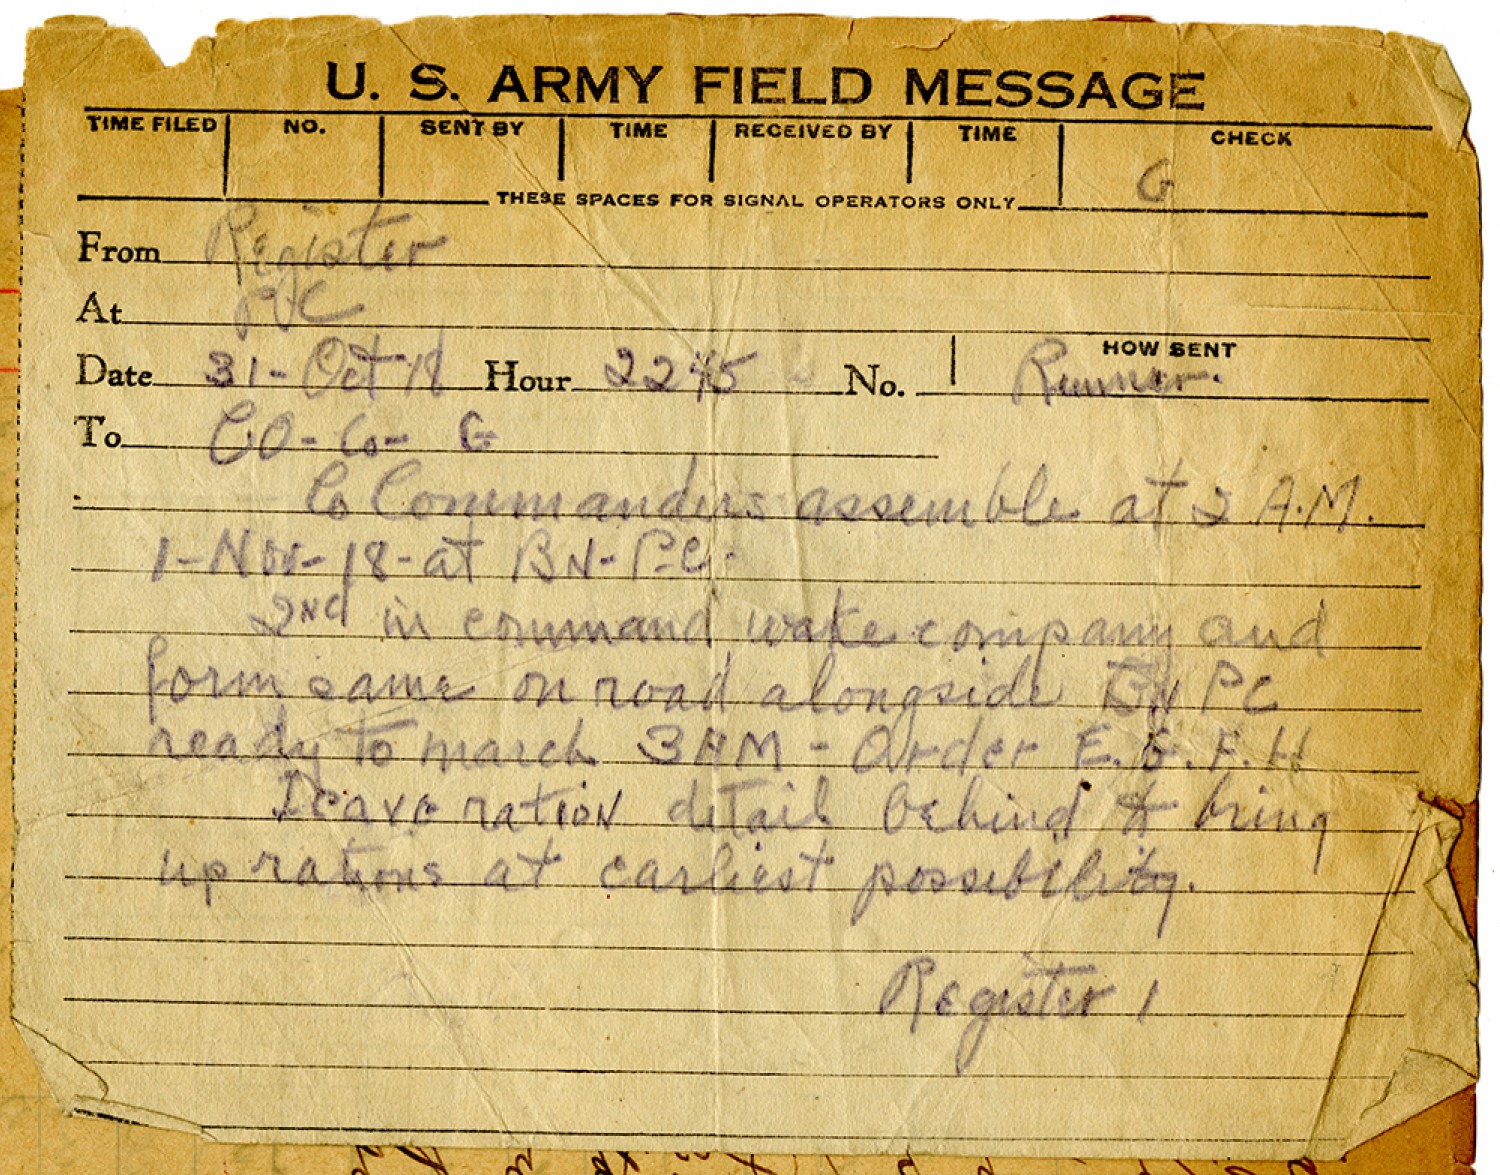 U. S. ARMY FIELD MESSAGE
TIME FILED NO. SENT BY TIME RECEIVED BY TIME CHECK
G
THESE SPACES FOR SIGNAL OPERATORS ONLY
From Register
At PC
Date 31-Oct 18 Hour 2245 No. HOW SENT Runner.
To CO-Co-G
Co Commanders assemble at 2 A.M.
1-Nov-18-at BN-P.C.
2ND in command wake company and
form same on road alongside BN PC
ready to march 3AM - Order E.G.F.H
Leave ration detail behind to bring
up rations at earliest possibility.
Register 1